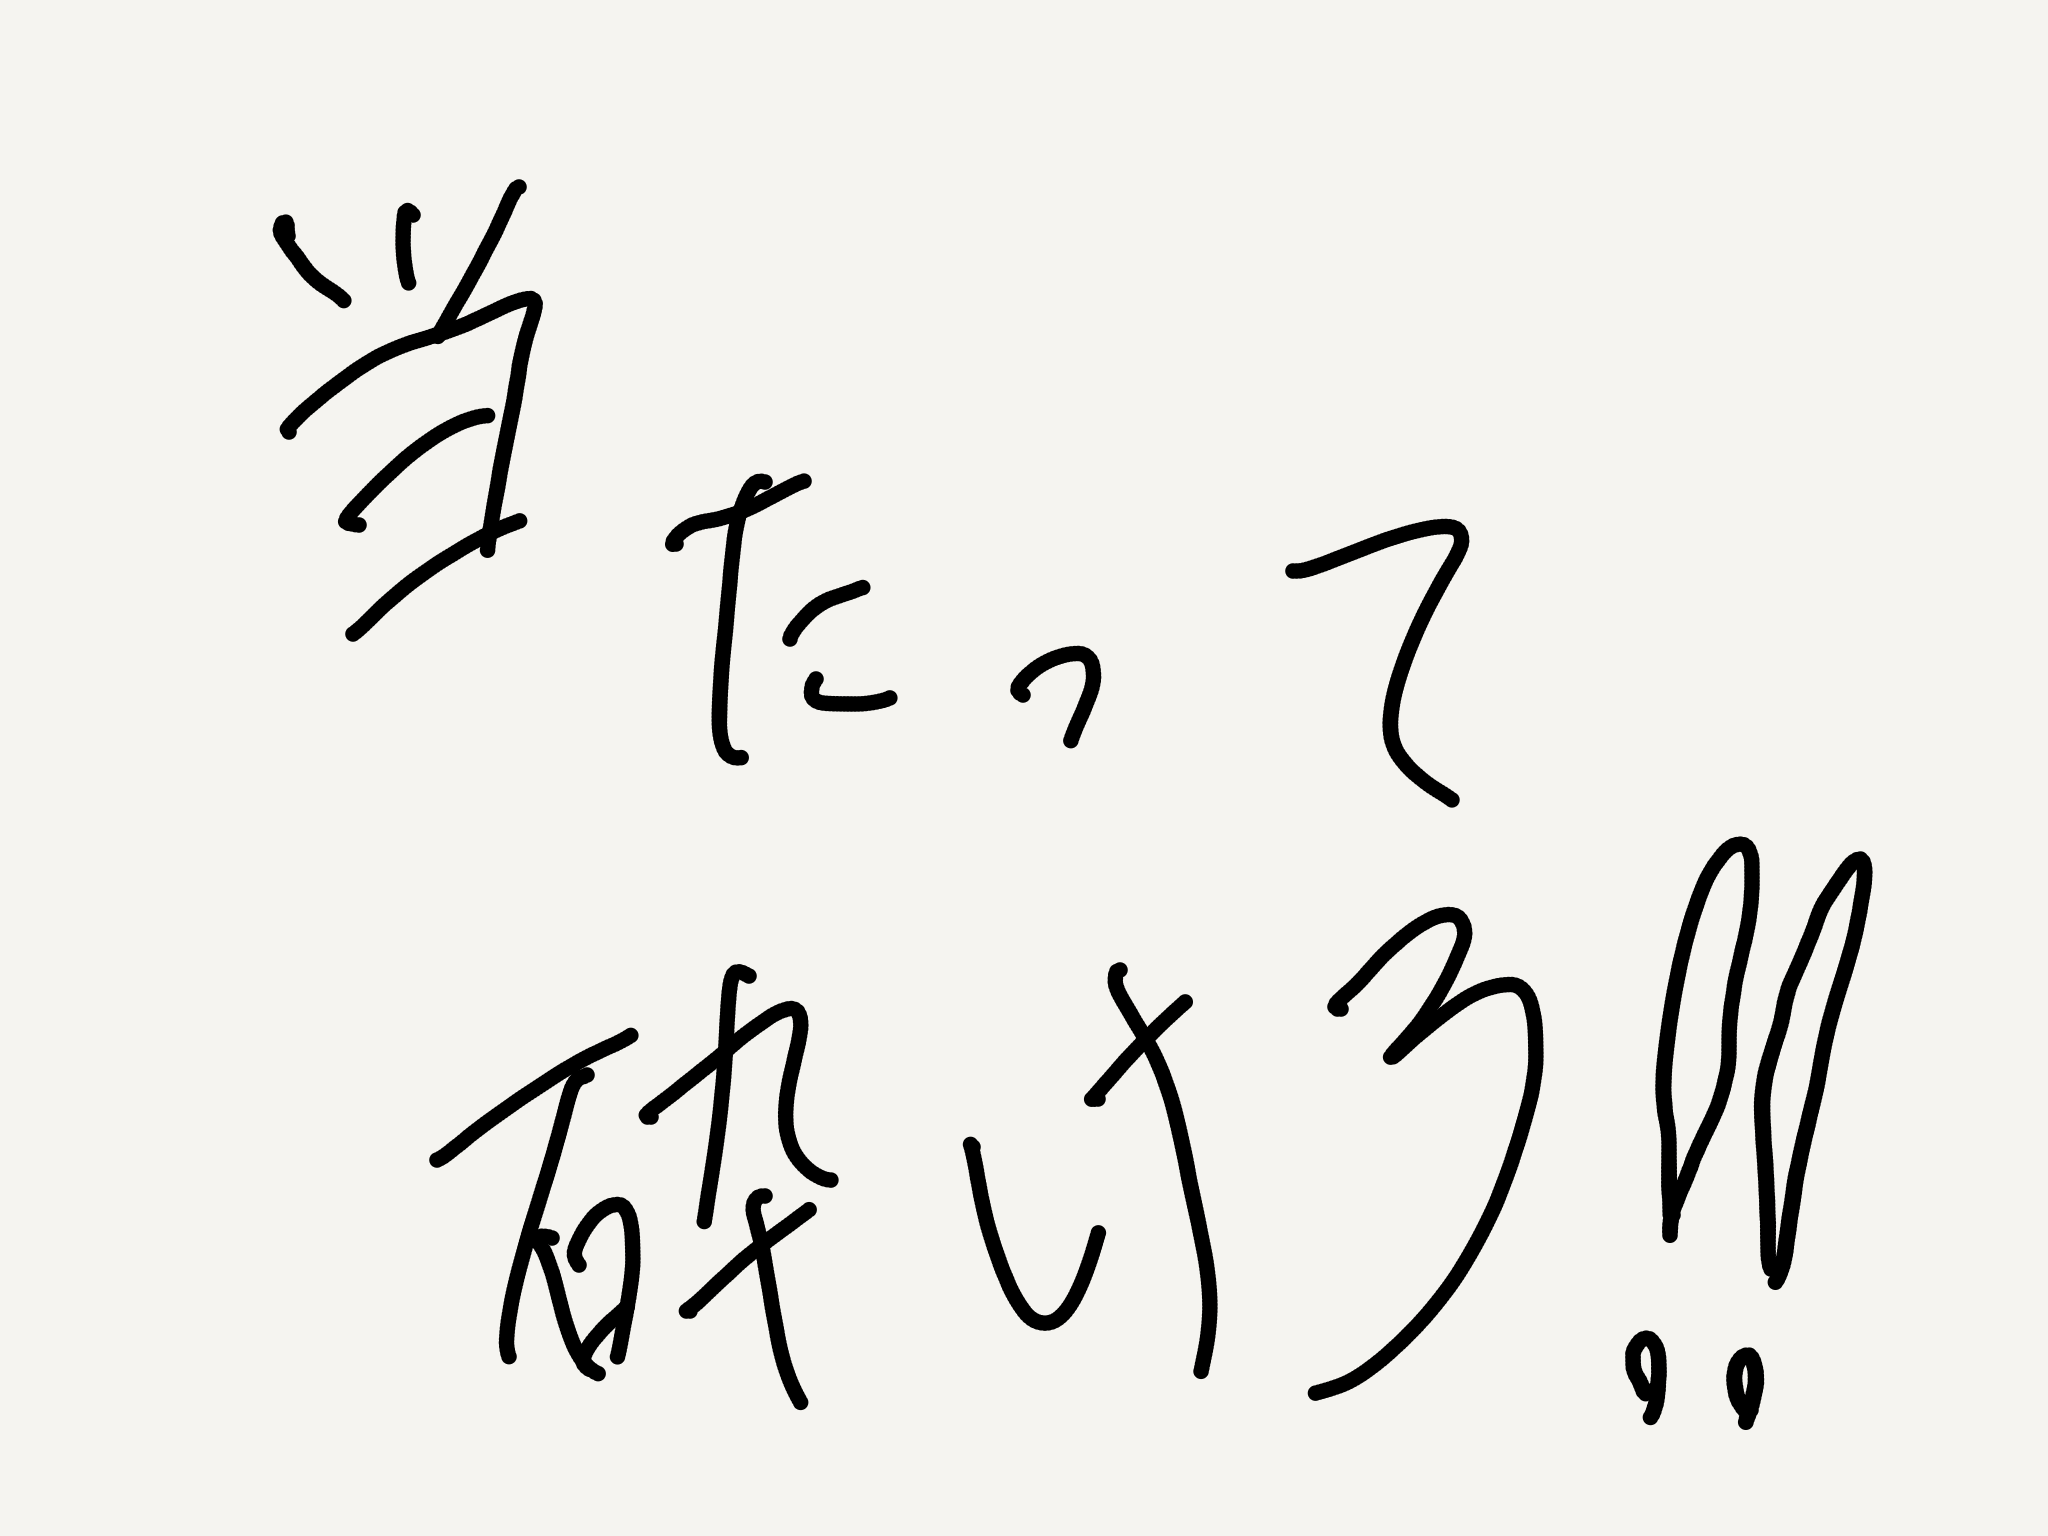 当たって
砕けろ!!